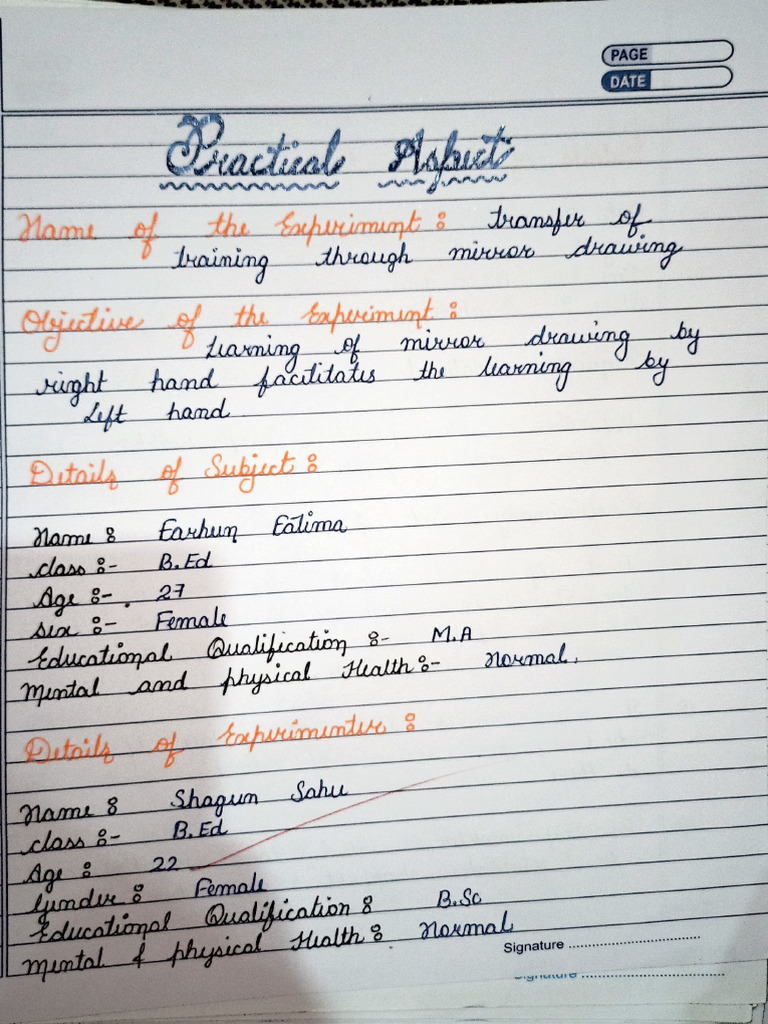 PAGE
DATE
Practical Aspect
Name of the Experiment : transfer of
training through mirror drawing
Objective of the Experiment :
Learning of mirror drawing by
right hand facilitates the learning by
Left hand
Details of Subject :
Name : Farhun Fatima
class :- B.Ed
Age :- 27
sex :- Female
Educational Qualification :- M.A
Mental and physical Health :- Normal.
Details of Experimenter :
Name : Shagun Sahu
class :- B.Ed
Age : 22
Gender : Female
Educational Qualification : B.Sc
Mental & physical Health : Normal
Signature
Signature